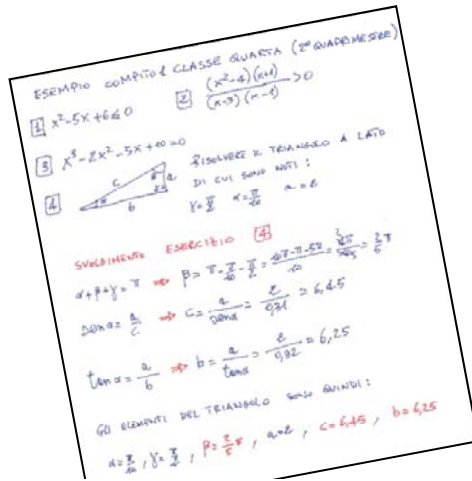 ESEMPIO COMPITO CLASSE QUARTA (2° QUADRIMESTRE)
1 x²-5x+6≤0
2 (x²-4)(x+1)/(x-3)(x-1) >0
3 x³-2x²-5x+10=0
4 RISOLVERE IL TRIANGOLO A LATO
c a b
DI CUI SONO NOTI:
γ=π/2 α=π/10 a=2
SVOLGIMENTO ESERCIZIO 4
α+β+γ=π ⇒ β=π-π/2-π/10= =2/5π
senα=a/c ⇒ c=a/senα=2/0,31=6,45
tanα=a/b ⇒ b=a/tanα=2/0,32=6,25
GLI ELEMENTI DEL TRIANGOLO SONO QUINDI:
α=π/10, γ=π/2, β=2/5π, a=2, c=6,45, b=6,25